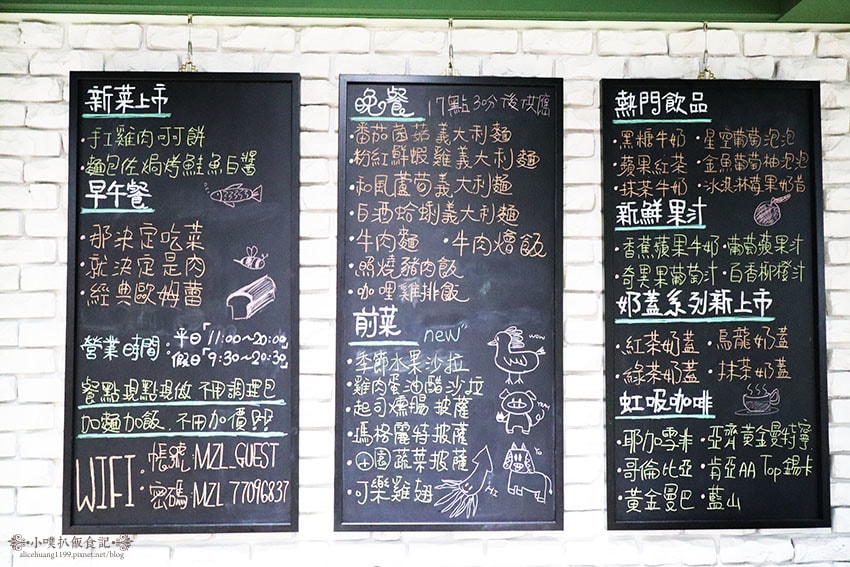 新菜上市
·手工雞肉可可餅
·麵包佐焗烤鮭魚白醬
早午餐
·那決定吃菜
·就決定是肉
·經典歐姆蕾
營業時間:平日「11:00~20:00」
假日「9:30~20:30」
餐點現點現做 不用調理包
加麵加飯.不用加價即
WIFI
·帳號:MZL_GUEST
·密碼:MZL 77096837
晚餐 17點30分後供應
·番茄菌菇義大利麵
·粉紅鮮蝦雞義大利麵
·和風蘆筍義大利麵
·白酒蛤蜊義大利麵
·牛肉麵 ·牛肉燴飯
·照燒豬肉飯
·咖哩雞排飯
前菜 new"
·季節水果沙拉
·雞肉蛋油醋沙拉
·起司燻腸披薩
·瑪格麗特披薩
·田園蔬菜披薩
·可樂雞翅
wow
熱門飲品
·黑糖牛奶 ·星空葡萄泡泡
·蘋果紅茶 ·金魚葡萄柚泡泡
·抹茶牛奶 ·冰淇淋莓果奶昔
新鮮果汁
·香蕉蘋果牛奶 ·葡萄蘋果汁
·奇異果葡萄汁 ·百香柳橙汁
奶蓋系列新上市
·紅茶奶蓋 ·烏龍奶蓋
·綠茶奶蓋 ·抹茶奶蓋
虹吸咖啡
·耶加雪菲 ·亞齊黃金曼特寧
·哥倫比亞 ·肯亞AA Top錫卡
·黃金曼巴 ·藍山
小噗扒飯食記
alicehuang1199.pixnet.net/blog